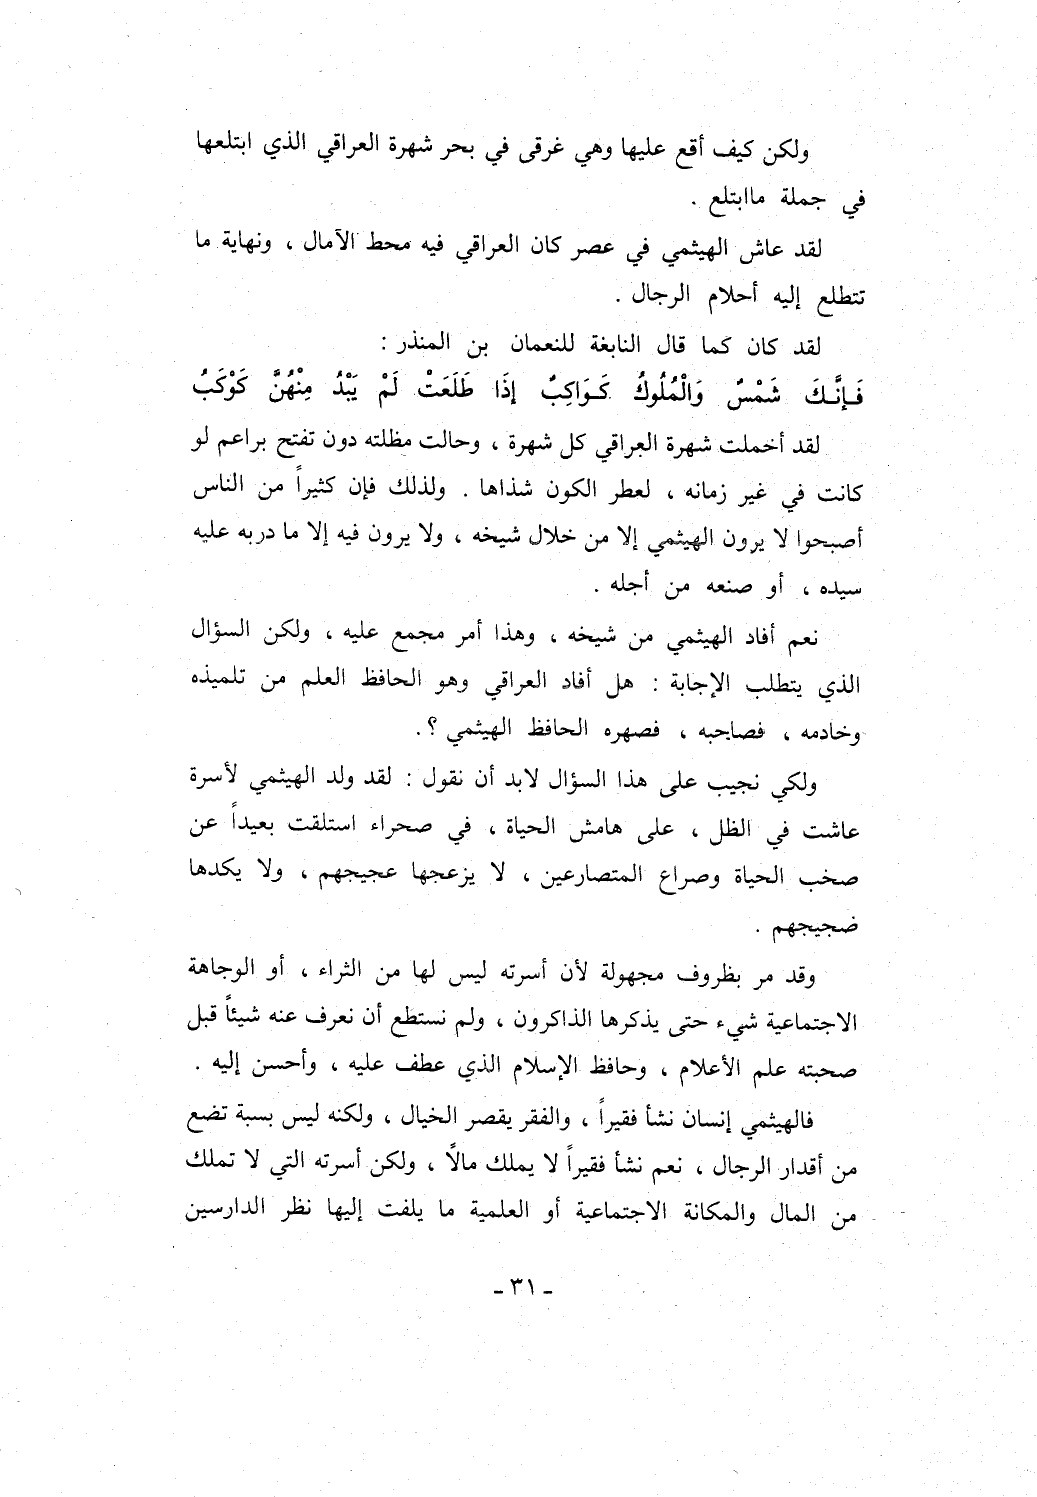 ولكن كيف أقع عليها وهي غرقى في بحر شهرة العراقي الذي ابتلعها
في جملة ماابتلع .
لقد عاش الهيثمي في عصر كان العراقي فيه محط الآمال ، ونهاية ما
تتطلع إليه أحلام الرجال .
لقد كان كما قال النابغة للنعمان بن المنذر :
فَإِنَّكَ شَمْسٌ وَالْمُلُوكُ كَوَاكِبٌ إِذَا طَلَعَتْ لَمْ يَبْدُ مِنْهُنَّ كَوْكَبُ
لقد أخملت شهرة العراقي كل شهرة ، وحالت مظلته دون تفتح براعم لو
كانت في غير زمانه ، لعطر الكون شذاها . ولذلك فإن كثيراً من الناس
أصبحوا لا يرون الهيثمي إلا من خلال شيخه ، ولا يرون فيه إلا ما دربه عليه
سيده ، أو صنعه من أجله .
نعم أفاد الهيثمي من شيخه ، وهذا أمر مجمع عليه ، ولكن السؤال
الذي يتطلب الإجابة : هل أفاد العراقي وهو الحافظ العلم من تلميذه
وخادمه ، فصاحبه ، فصهره الحافظ الهيثمي ؟.
ولكي نجيب على هذا السؤال لابد أن نقول : لقد ولد الهيثمي لأسرة
عاشت في الظل ، على هامش الحياة ، في صحراء استلقت بعيداً عن
صخب الحياة وصراع المتصارعين ، لا يزعجها عجيجهم ، ولا يكدها
ضجيجهم .
وقد مر بظروف مجهولة لأن أسرته ليس لها من الثراء ، أو الوجاهة
الاجتماعية شيء حتى يذكرها الذاكرون ، ولم نستطع أن نعرف عنه شيئاً قبل
صحبته علم الأعلام ، وحافظ الإسلام الذي عطف عليه ، وأحسن إليه .
فالهيثمي إنسان نشأ فقيراً ، والفقر يقصر الخيال ، ولكنه ليس بسبة تضع
من أقدار الرجال ، نعم نشأ فقيراً لا يملك مالاً ، ولكن أسرته التي لا تملك
من المال والمكانة الاجتماعية أو العلمية ما يلفت إليها نظر الدارسين
- ٣١ -